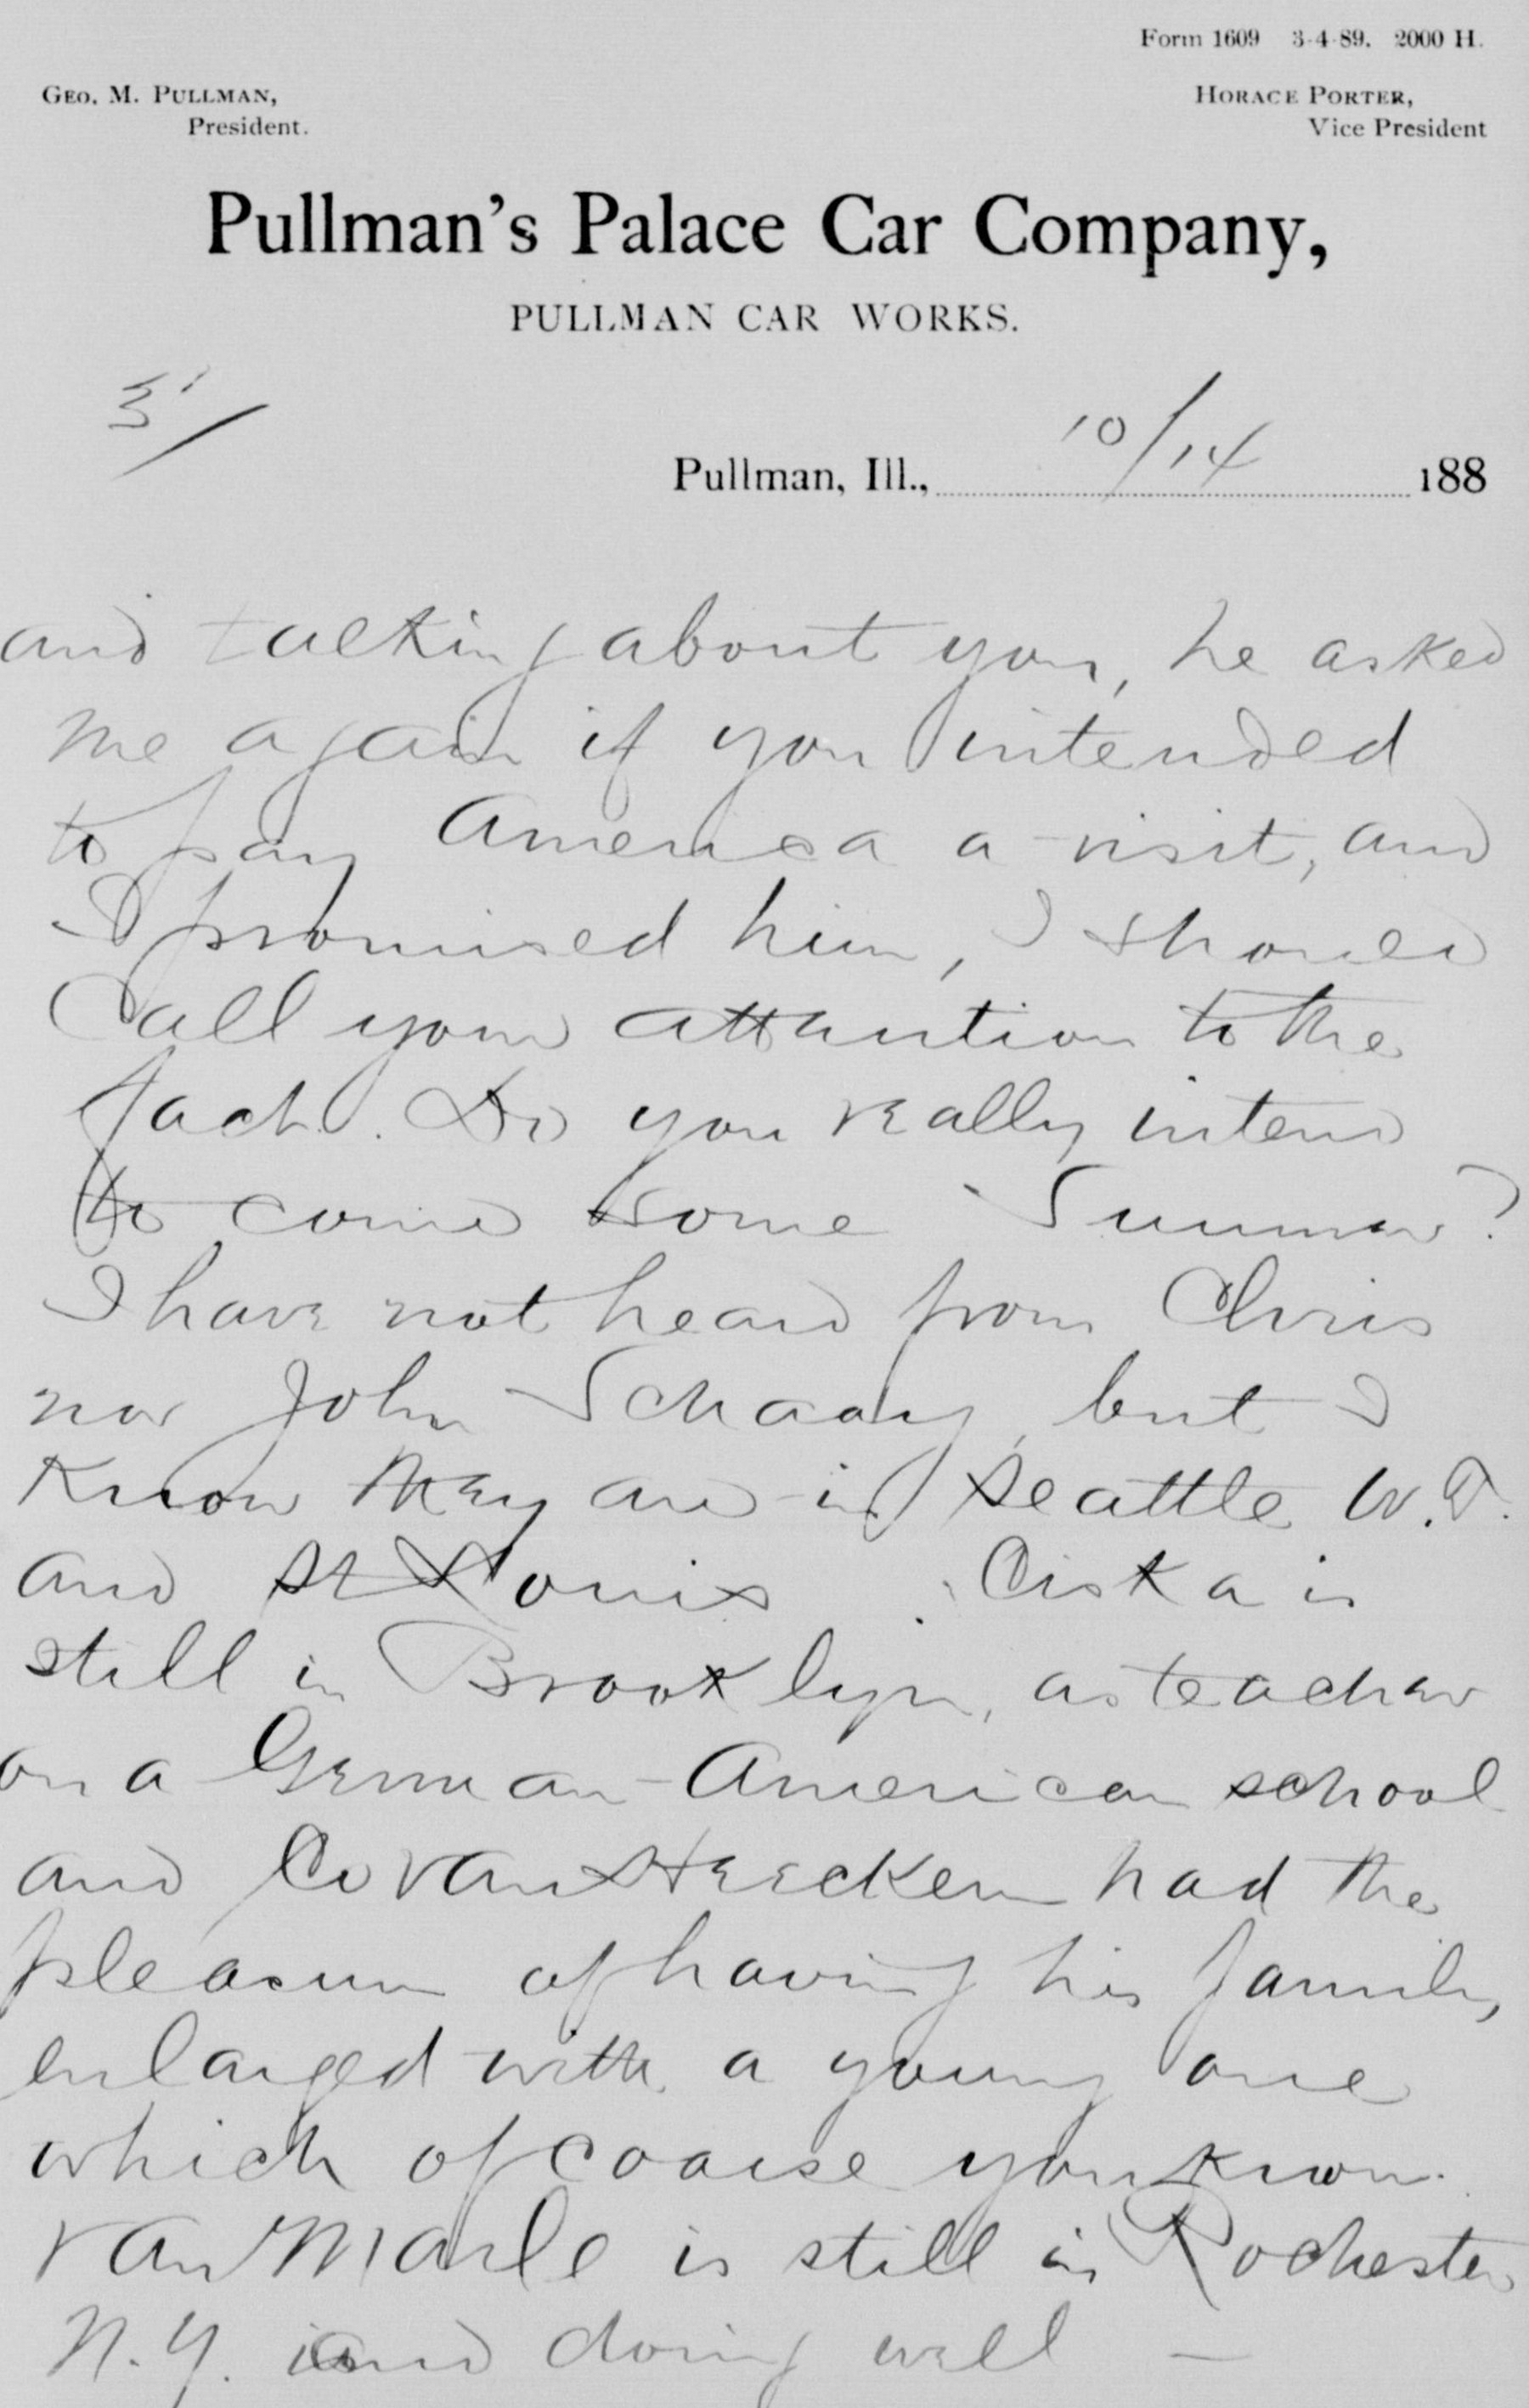 Form 1609 3-4-89. 2000 H.
GEO. M. PULLMAN,
President.
HORACE PORTER,
Vice President
Pullman's Palace Car Company,
PULLMAN CAR WORKS.
3/
Pullman, Ill., 10/14 188
and talking about you, he asked
me again if you intended
to pay America a visit, and
I promised him, I should
Call your attantion to the
fact. Do you really intend
to come some Summer?
I have not heard from Chris
nor John Schaay, but I
Know they are in Seattle W.T.
and St Louis. Ciska is
still in Brooklyn, as teacher
on a German-American school
and Co van Heeckeren had the
pleasure of having his family
enlarged with a young one
which of coarse you know.
van Marle is still in Rochester
N.Y. and doing well —